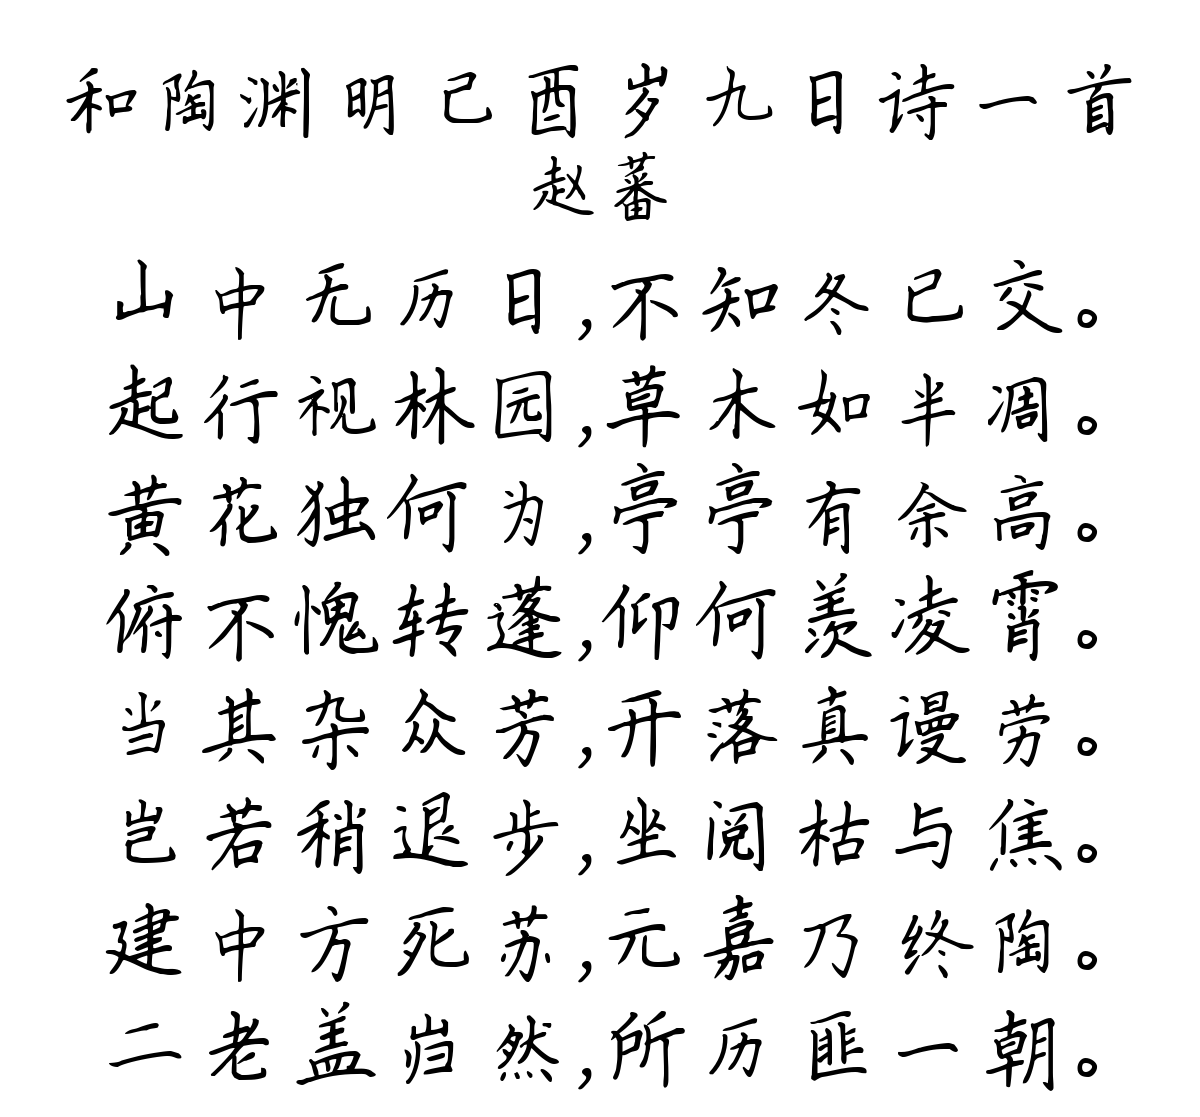 和陶渊明己酉岁九日诗一首
赵蕃
山中无历日,不知冬已交。
起行视林园,草木如半凋。
黄花独何为,亭亭有余高。
俯不愧转蓬,仰何羡凌霄。
当其杂众芳,开落真谩劳。
岂若稍退步,坐阅枯与焦。
建中方死苏,元嘉乃终陶。
二老盖岿然,所历匪一朝。